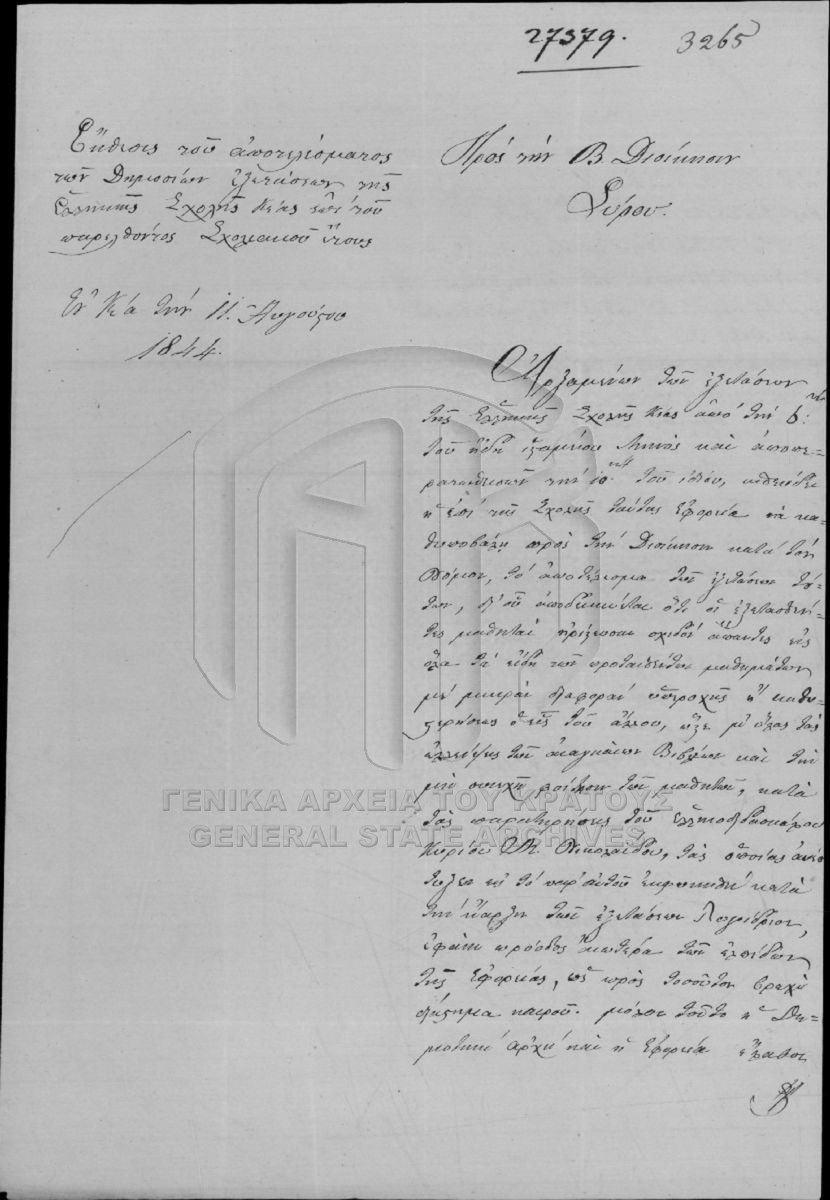 27379.
3265
Ἔκθεσις τοῦ ἀποτελέσματος
τῶν Δημοσίων ἐξετάσεων τῆς
Ἑλληνικῆς Σχολῆς Κέας ἐπὶ τοῦ
παρελθόντος Σχολιακοῦ ἔτους
Ἐν Κέᾳ τὴν 11. Αὐγούστου
1844.
Πρὸς τὴν Β. Διοίκησιν
Σύρου.
Ἀρξαμένων τῶν ἐξετάσεων
τῆς Ἑλληνικῆς Σχολῆς Κέας ἀπὸ τὴν 6: ην
τοῦ ἤδη Μηνὸς καὶ ἀποπε=
ρατωθεισῶν τὴν τοῦ ἰδίου,
ἡ ἐπὶ τῆς Σχολῆς ταύτης Ἐφορεία νὰ κα=
θυποβάλῃ πρὸς τὴν Διοίκησιν κατὰ τὸν
Νόμον, τὸ ἀποτέλεσμα τῶν ἐξετάσεων τού=
των, ἐξ οὗ ἀποδεικνύεται ὅτι οἱ ἐξετασθέν=
τες μαθηταὶ σχεδὸν ἅπαντες εἰς
ὅλα τὰ εἴδη τῶν μαθημάτων
μὲ μικρὰν διαφορὰν ὑπεροχῆς ἢ καθυ=
στερήσεως ὁ εἷς τοῦ ἄλλου, μὲ ὅλας τὰς
ἐλλείψεις τῶν ἀναγκαίων Βιβλίων καὶ τὴν
μὴ συνεχῆ φοίτησιν τῶν μαθητῶν, κατὰ
τὰς παρατηρήσεις τοῦ ἑλληνοδιδασκάλου
Κυρίου Νικολαΐδου, τὰς ὁποίας
εἰς τὸ παρ' αὐτοῦ ἐκφωνηθὲν κατὰ
τὴν ἔναρξιν τῶν ἐξετάσεων Λογίδριον,
ἐφάνη πρόοδος ἀνωτέρα τῶν ἐλπίδων
τῆς Ἐφορείας, ὡς πρὸς τοσοῦτον βραχὺ
διάστημα καιροῦ. μόλον τοῦτο ἡ Δη=
μοτικὴ ἀρχὴ καὶ ἡ Ἐφορεία ἔλαβον
ΓΕΝΙΚΑ ΑΡΧΕΙΑ ΤΟΥ ΚΡΑΤΟΥΣ
GENERAL STATE ARCHIVES